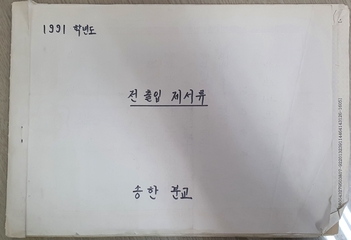 1991 학년도
전 출입 제서류
송한 분교